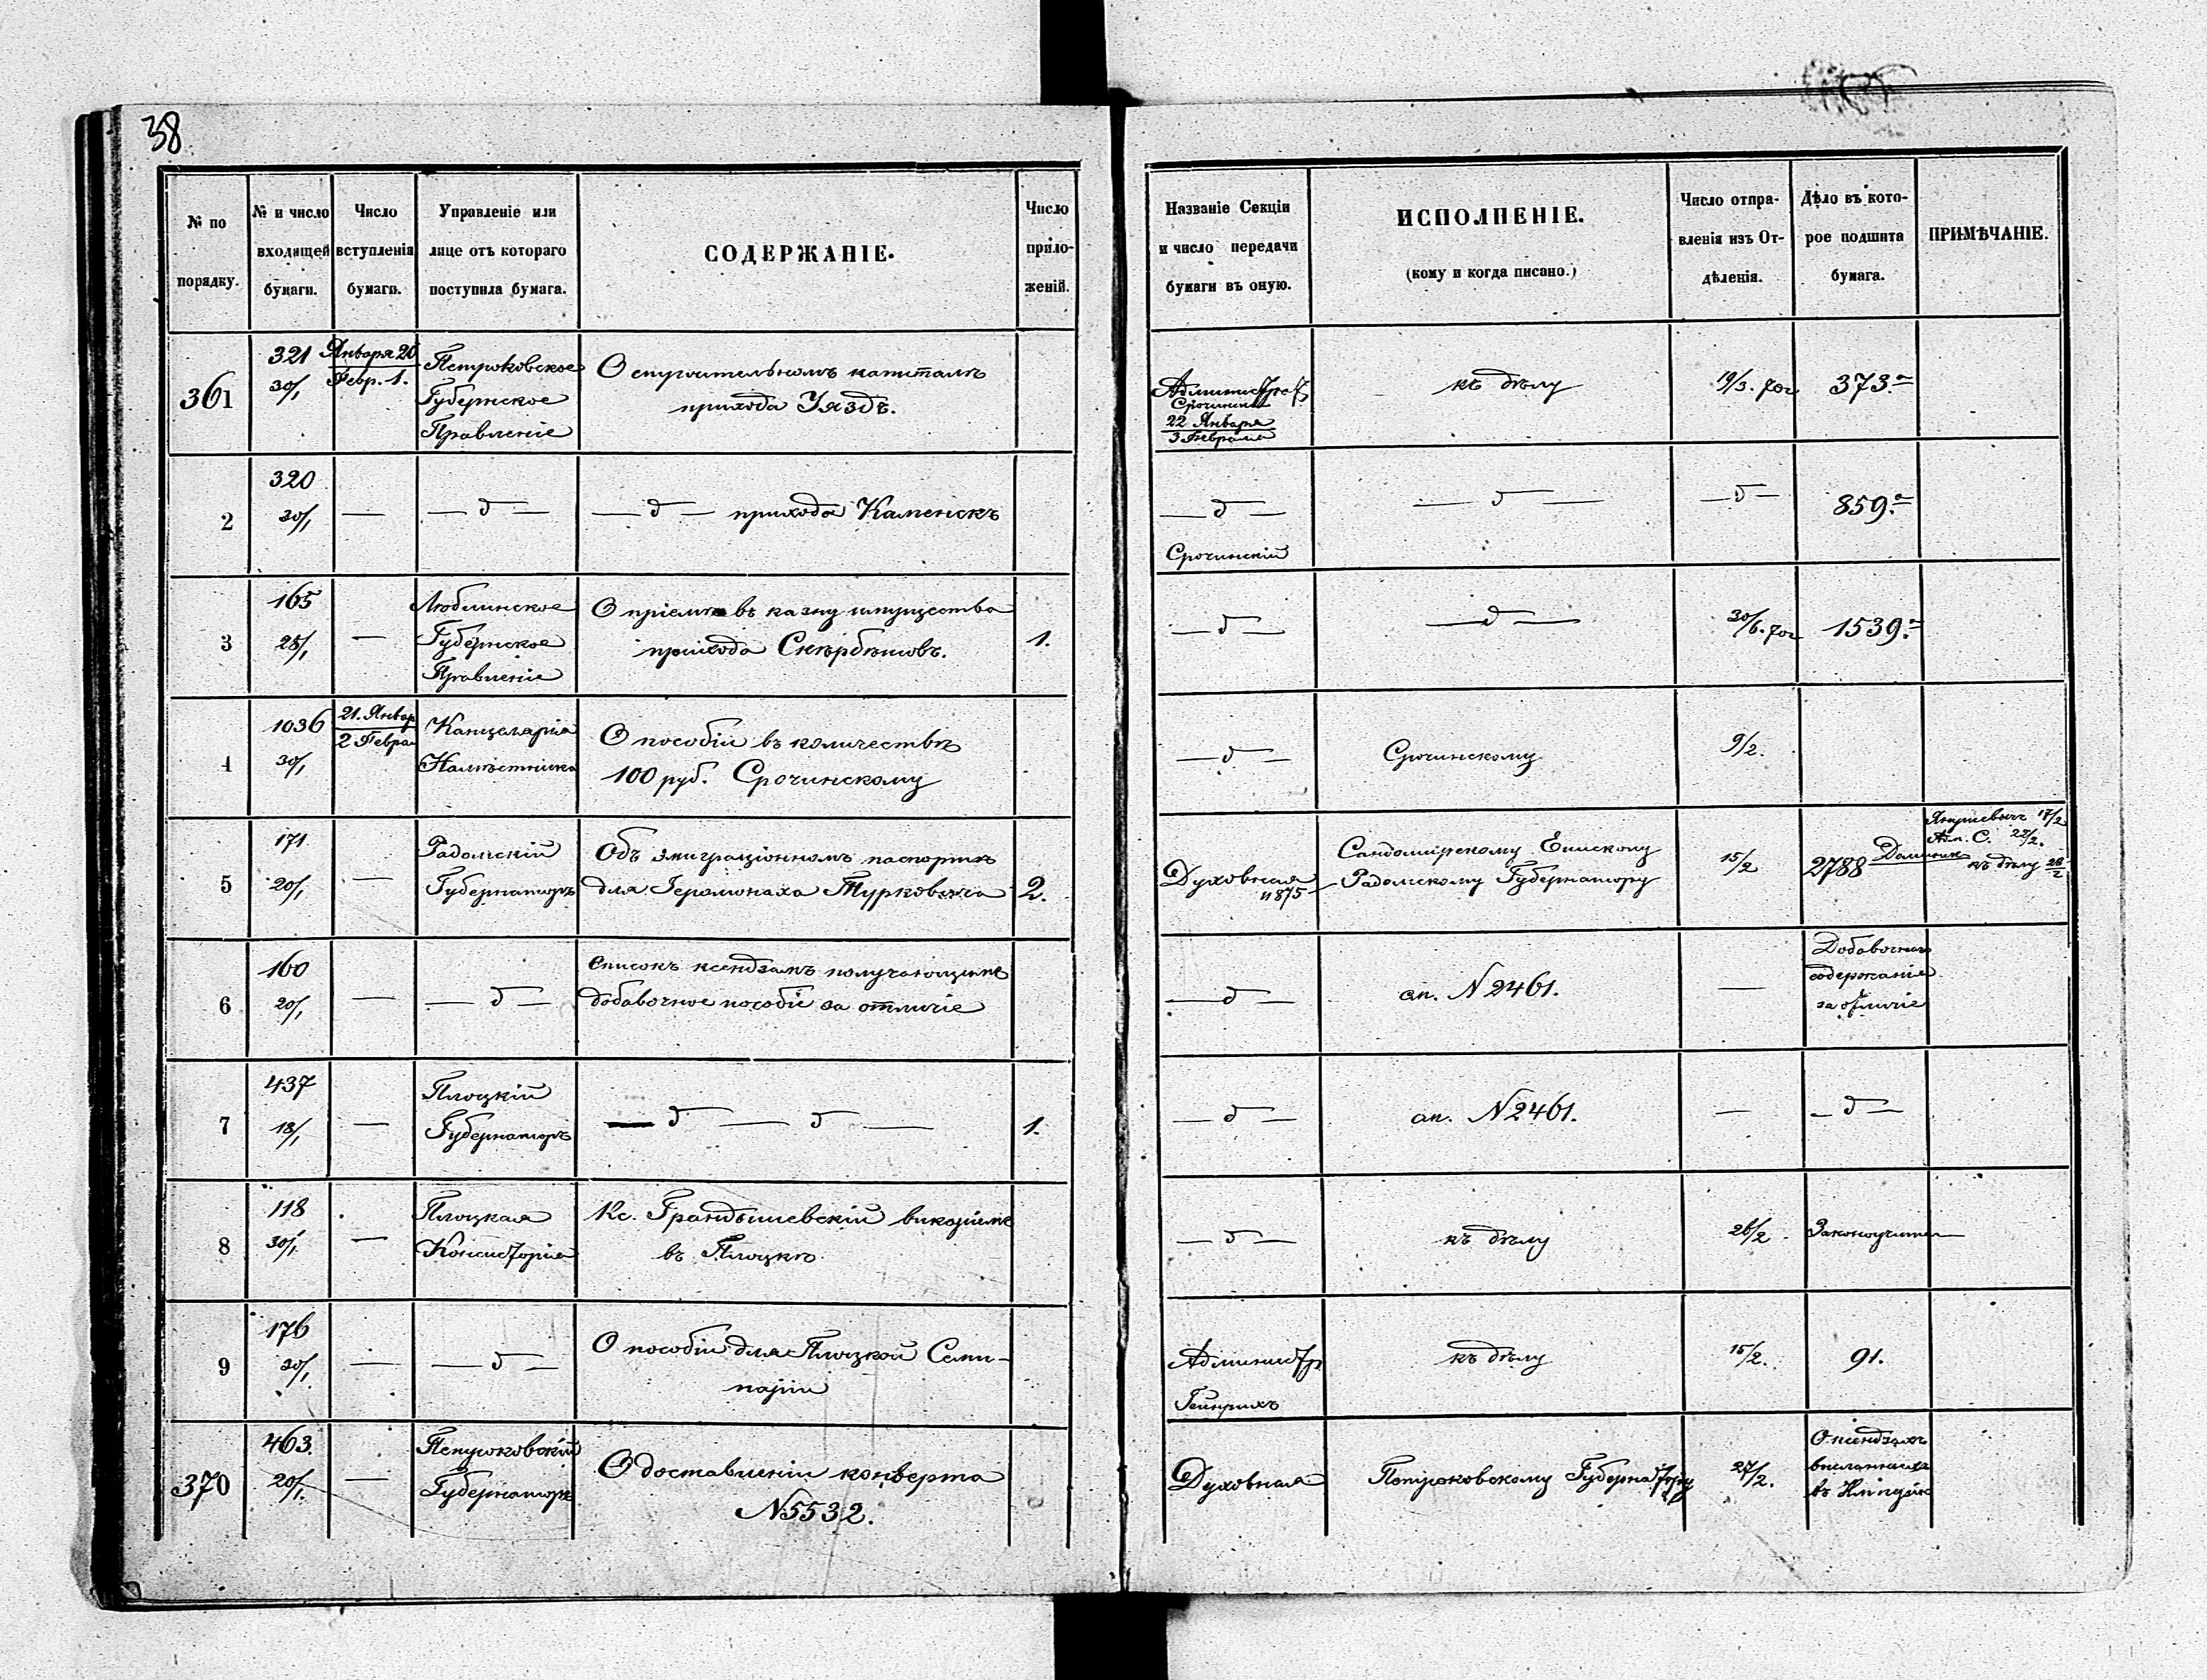 38
№ по порядку.
№ и число входящей бумаги.
Число вступленія бумаги.
Управленіе или лице отъ котораго поступила бумага.
СОДЕРЖАНІЕ.
Число прило- женій.
Названіе Секціи и число передачи бумаги въ оную.
ИСПОЛНЕНІЕ.
(кому и когда писано.)
Число отпра- вленія изъ От- дѣленія.
Дѣло въ кото- рое подшита бумага.
ПРИМѢЧАНІЕ.
361
321
30/1
Января 20
Февр. 1.
Петроковское
Губернское
Правленіе
О строительномъ капиталѣ
прихода Уяздъ.
22 Января
3 Февраля
къ дѣлу
19/3. 70г
373.а
2
320
30/1
— д —
— д — прихода Каменскъ
— д —
Срочинскій
— д —
— д —
859.а
3
165
28/1
—
Люблинское
Губернское
Правленіе
О пріемѣ въ казну имущества
прихода Скѣрбѣшовъ.
1.
— д —
— д —
30/6. 70г
1539.а
4
1036
30/1
21. Январ
2 Февра
Канцелярія
Намѣстника
О пособіи въ количествѣ
100 руб. Срочинскому
— д —
Срочинскому
9/2.
5
171
20/1
—
Радомскій
Губернаторъ
Объ эмиграціонномъ паспортѣ
для Іеромонаха Турковича
2.
Духовная
Сандомирскому Епискому
Радомскому Губернатору
15/2
2788
17/2
22/2.
къ дѣлу 26/2
6
160
20/1
—
— д —
Списокъ ксендзамъ получающимъ
добавочное пособіе за отличіе
— д —
ап. N 2461.
—
Добавочное
содержаніе
за отличіе
7
437
18/1
—
Плоцкій
Губернаторъ
— д — д —
1.
— д —
ап. N 2461.
—
— д —
8
118
30/1
—
Плоцкая
Консисторія
Кс. викаріемъ
въ Плоцкѣ
— д —
къ дѣлу
26/2
Законоучители
9
176
30/1
—
— д —
О пособіи для Плоцкой Семи-
наріи
Администр
Гейнрихъ
къ дѣлу
15/2.
91.
370
463.
20/1.
—
Петроковскій
Губернаторъ
О доставленіи конверта
N 5532.
Духовная
Петроковскому Губернатору
27/2.
О ксендзахъ
высланныхъ
въ Имперію